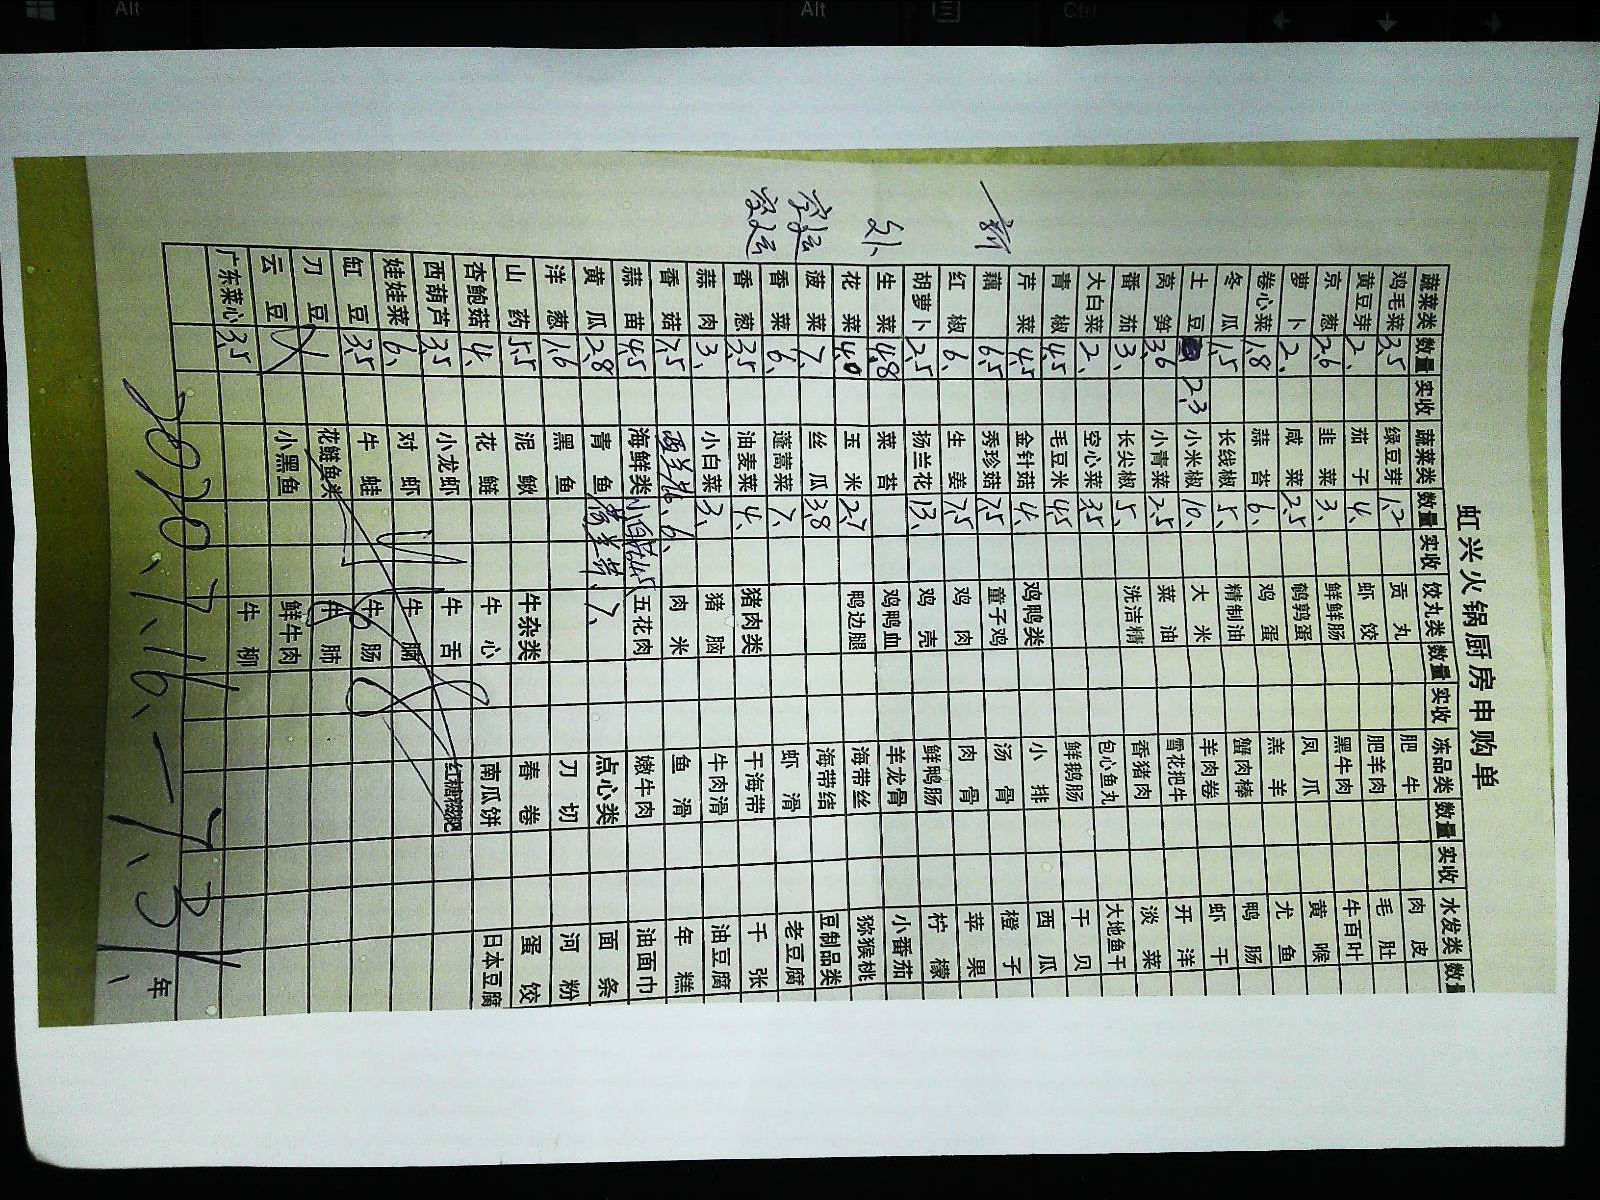 虹兴火锅厨房申购单
蔬菜类 数量 实收 蔬菜类 数量 实收 饺丸类 数量 实收 冻品类 数量 实收 水发类 数量
鸡毛菜 3.5 绿豆芽 1.2 贡丸 肥牛 肉皮
黄豆芽 2、 茄子 4、 虾饺 肥羊肉 毛肚
京葱 2.6 韭菜 3、 鲜鲜肠 黑牛肉 牛百叶
萝卜 2、 咸菜 2.5 鹌鹑蛋 凤爪 黄喉
卷心菜 1.8 蒜苔 6、 鸡蛋 羔羊 尤鱼
冬瓜 1.5 长线椒 5、 精制油 蟹肉棒 鸭肠
土豆 2.3 小米椒 10、 大米 羊肉卷 虾干
莴笋 3.6 小青菜 2.5 菜油 雪花把牛 开洋
番茄 3、 长尖椒 5、 洗洁精 香猪肉 淡菜
大白菜 2、 空心菜 3.5 包心鱼丸 大地鱼干
青椒 4.5 毛豆米 4.5 鲜鹅肠 干贝
芹菜 4.5 金针菇 4、 鸡鸭类 小排 西瓜
藕 6.5 秀珍菇 7.5 童子鸡 汤骨 橙子
红椒 6、 生姜 7.5 鸡肉 肉骨 苹果
胡萝卜 2.5 扬兰花 13、 鸡壳 鲜鸭肠 柠檬
生菜 4.8 菜苔 鸡鸭血 羊龙骨 小番茄
花菜 4.0 玉米 2.7 鸭边腿 海带丝 猕猴桃
菠菜 7、 丝瓜 3.8 海带结 豆制品类
香菜 6、 蓬蒿菜 7、 虾滑 老豆腐
香葱 3.5 油麦菜 4、 猪肉类 干海带 千张
蒜肉 3、 小白菜 3、 猪脑 牛肉滑 油豆腐
香菇 7.5 西兰花 6、 肉米 鱼滑 年糕
蒜苗 4.5 海鲜类 五花肉 嫩牛肉 油面巾
黄瓜 2.8 青鱼 7、 点心类 面条
洋葱 1.6 黑鱼 刀切 河粉
山药 5.5 泥鳅 牛杂类 春卷 蛋饺
杏鲍菇 4、 花鲢 牛心 南瓜饼 日本豆腐
西葫芦 3.5 小龙虾 牛舌 红糖糍粑
娃娃菜 6、 对虾 牛腩
缸豆 3.5 牛蛙 牛肠
刀豆 花鲢鱼类 牛肺
云豆 小黑鱼 鲜牛肉
广东菜心 3.5 牛柳
2020、7、16、一7、31、 年